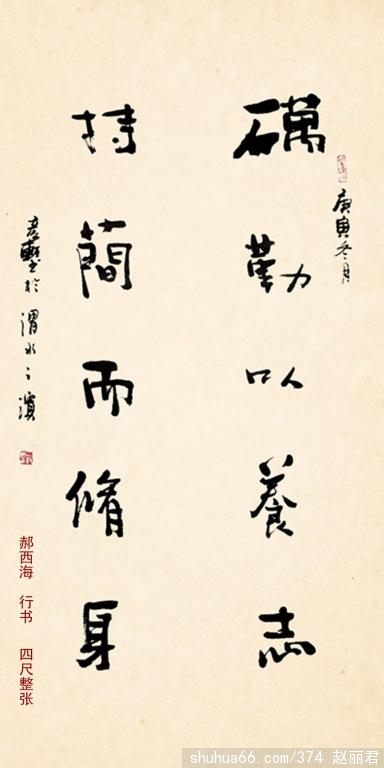 庚寅冬月
礪勤以養志
持簡而脩身
於渭水之濱
郝西海 行书 四尺整张
shuhua66.com/374 赵丽君